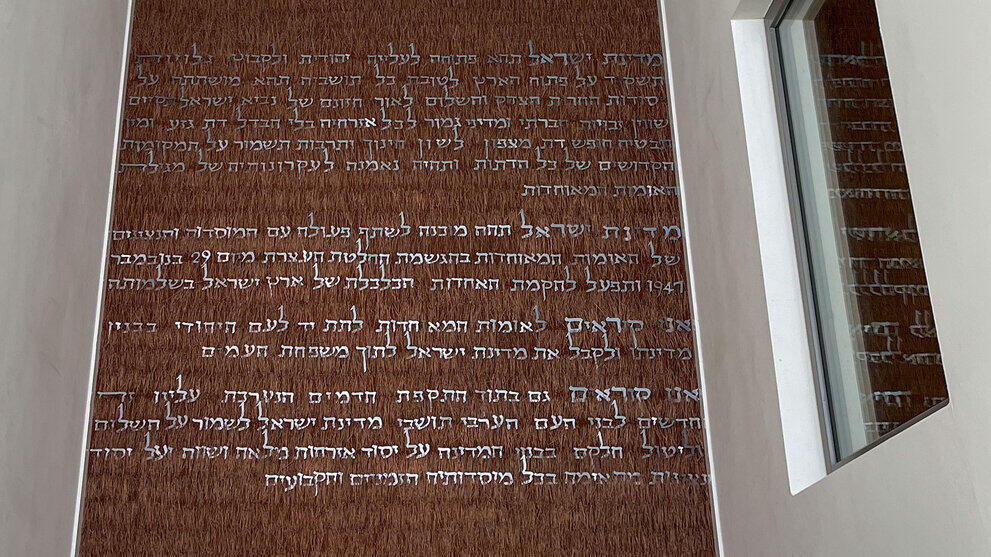 מדינת ישראל תהא פתוחה לעליה יהודית ולקבוץ גלויות
תשקד על פתוח הארץ לטובת כל תושביה תהא מושתתה על
יסודות החרות הצדק והשלום לאור חזונם של נביאי ישראל תקיים
שויון זכויות חברתי ומדיני גמור לכל אזרחיה בלי הבדל דת גזע ומין
תבטיח חופש דת מצפון לשון חינוך ותרבות תשמור על המקומות
הקדושים של כל הדתות ותהיה נאמנה לעקרונותיה של מגילת
האומות המאוחדות
מדינת ישראל תהא מוכנה לשתף פעולה עם המוסדות והנציגים
של האומות המאוחדות בהגשמת החלטת העצרת מיום 29 בנובמבר
1947 ותפעל להקמת האחדות הכלכלית של ארץ ישראל בשלמותה
אנו קוראים לאומות המאוחדות לתת יד לעם היהודי בבנין
מדינתו ולקבל את מדינת ישראל לתוך משפחת העמים
אנו קוראים גם בתוך התקפת הדמים הנערכת עלינו זה
חדשים לבני העם הערבי תושבי מדינת ישראל לשמור על השלום
וליטול חלקם בבנין המדינה על יסוד אזרחות מלאה ושווה ועל יסוד
נציגות מתאימה בכל מוסדותיה הזמניים והקבועים